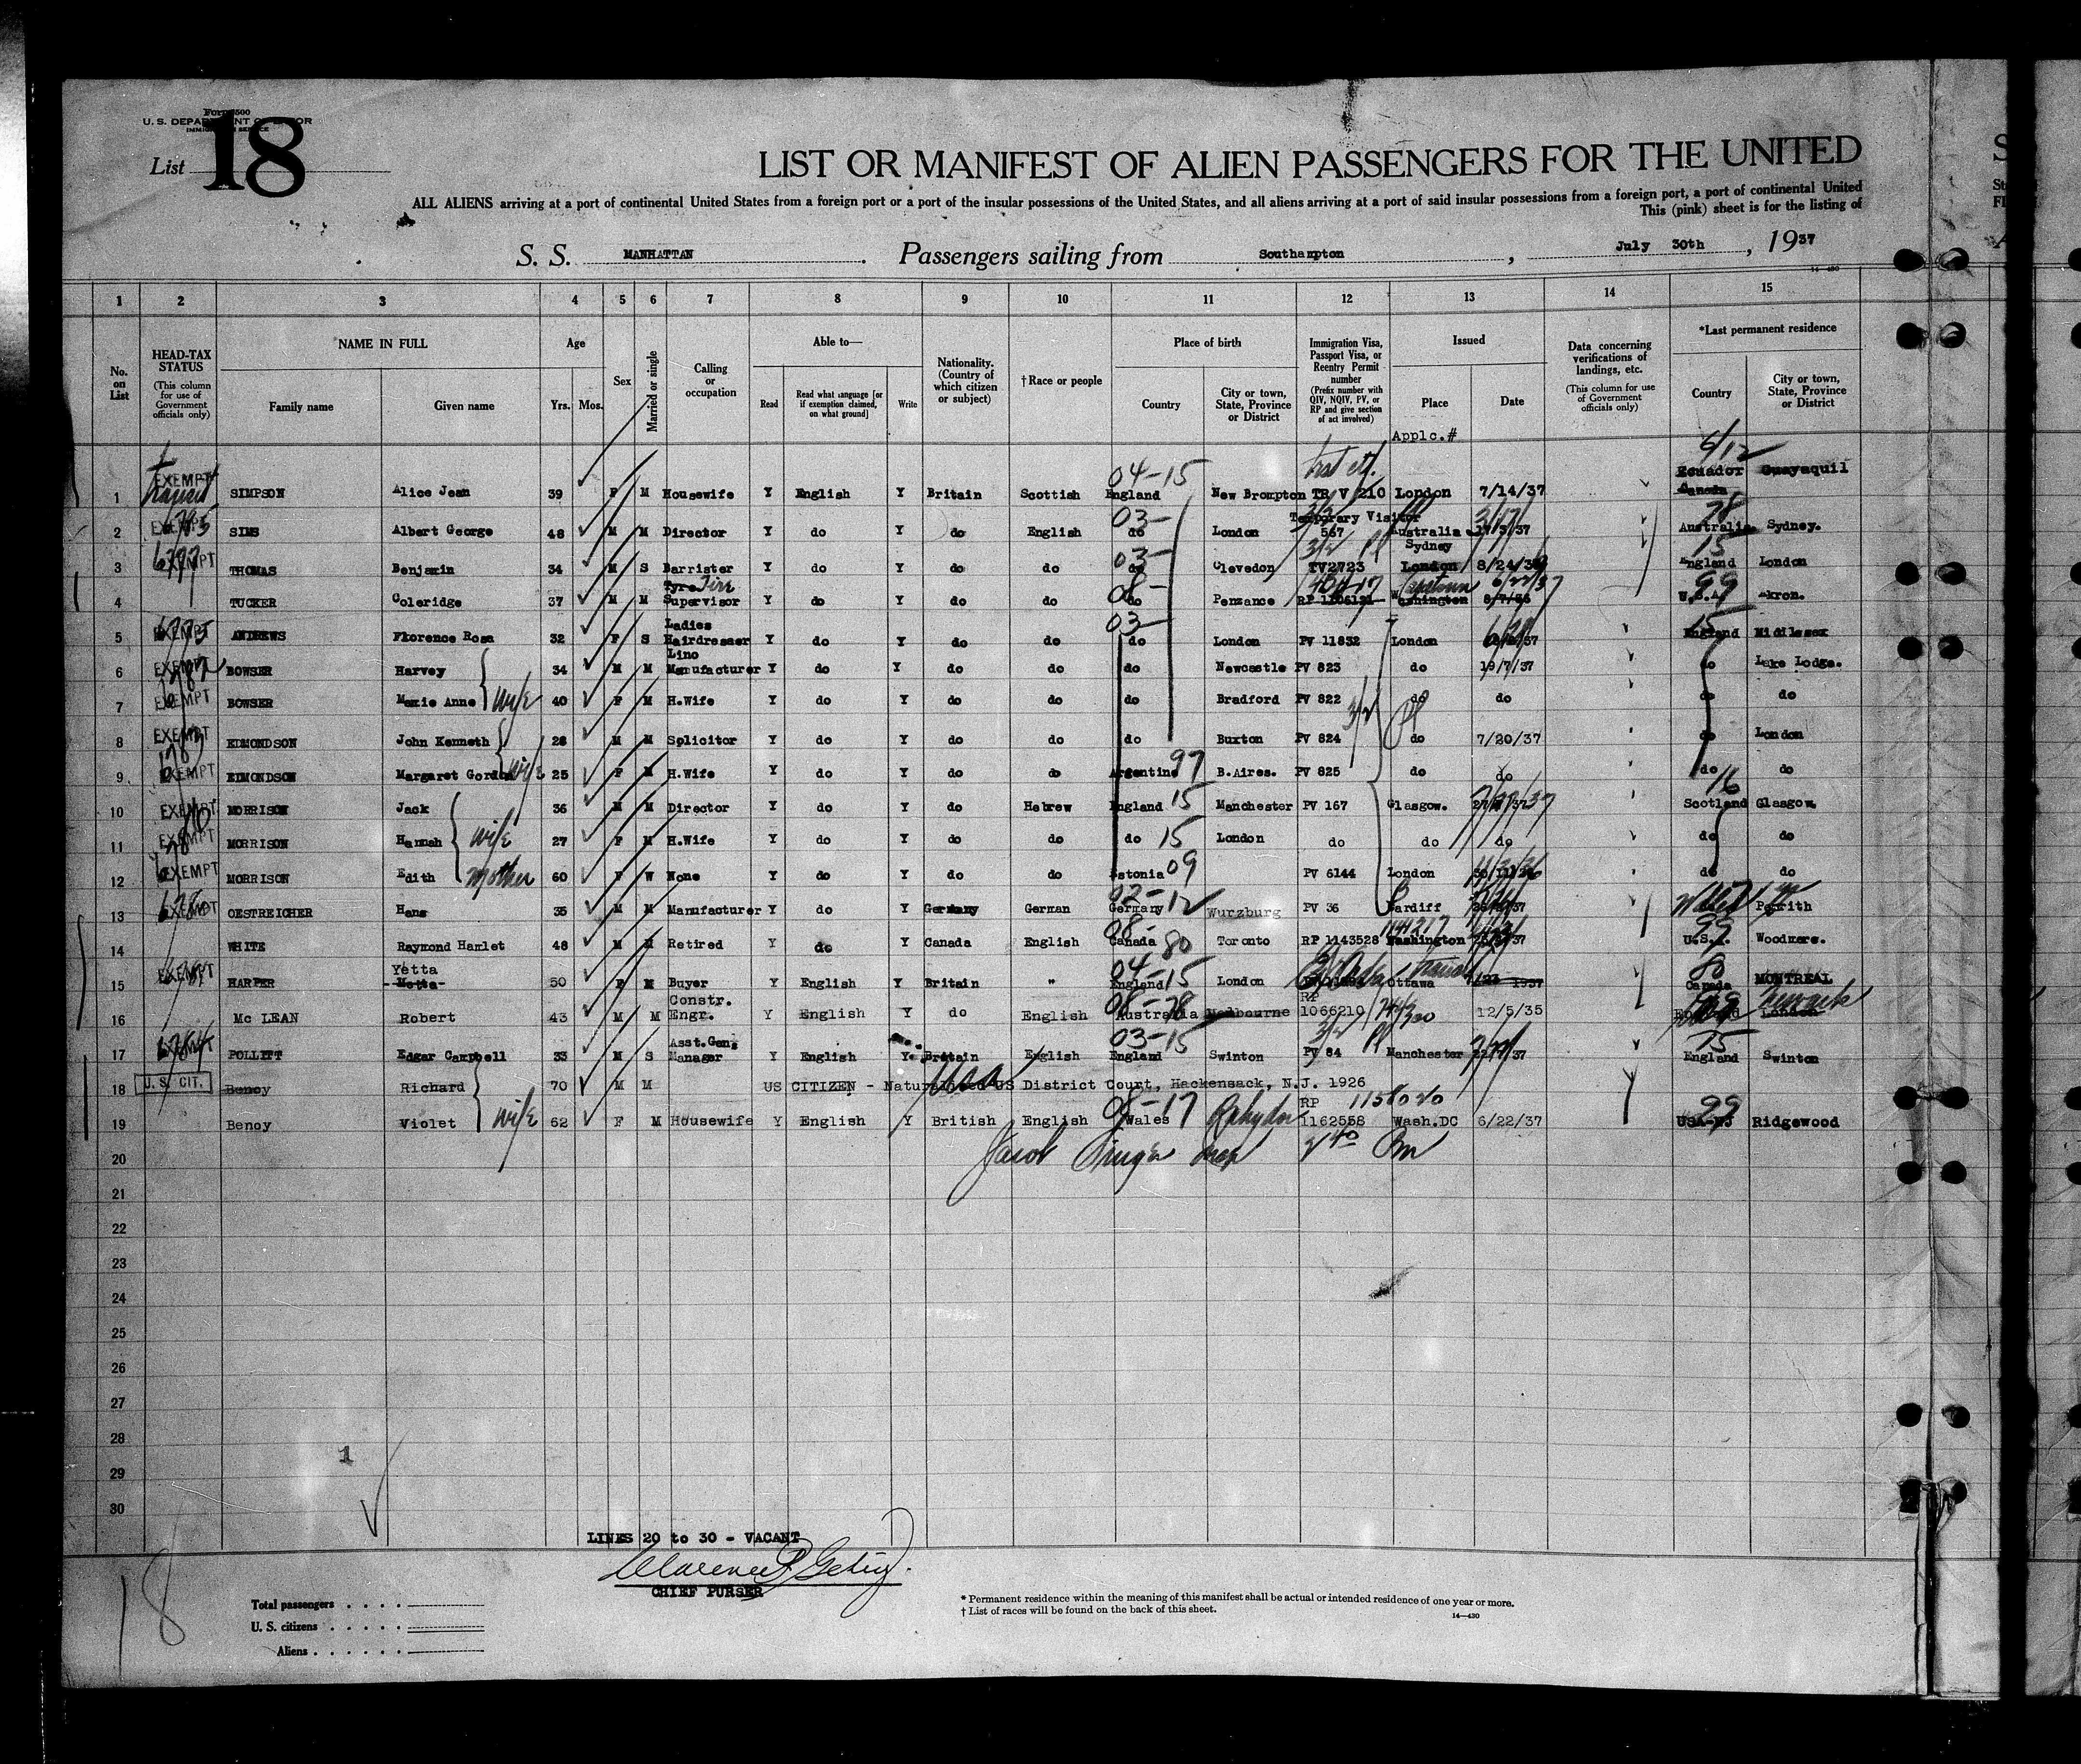 Form 500
U. S. DEPARTMENT OF LABOR
IMMIGRATION SERVICE
List 18
LIST OR MANIFEST OF ALIEN PASSENGERS FOR THE UNITED
ALL ALIENS arriving at a port of continental United States from a foreign port or a port of the insular possessions of the United States, and all aliens arriving at a port of said insular possessions from a foreign port, a port of continental United
This (pink) sheet is for the listing of
S. S. MANHATTAN Passengers sailing from Southampton, July 30th, 1937
14—430
1 2 3 4 5 6 7 8 9 10 11 12 13 14 15
No. on List
HEAD-TAX STATUS
(This column for use of Government officials only)
NAME IN FULL
Family name Given name
Age
Yrs. Mos.
Sex
Married or single
Calling or occupation
Able to—
Read Read what language [or if exemption claimed, on what ground] Write
Nationality. (Country of which citizen or subject)
†Race or people
Place of birth
Country City or town, State, Province or District
Immigration Visa, Passport Visa, or Reentry Permit number
(Prefix number with QIV, NQIV, PV, or RP and give section of act involved)
Issued
Place Date
Applc.#
Data concerning verifications of landings, etc.
(This column for use of Government officials only)
*Last permanent residence
Country City or town, State, Province or District
04-15
1 EXEMPT transit SIMPSON Alice Jean 39 F M Housewife Y English Y Britain Scottish England New Brompton TR V 210 London 7/14/37 Ecuador Guayaquil
03- Temporary Visitor 78
2 EXEMPT SIMS Albert George 48 M M Director Y do Y do English do London 567 Australia Sydney 17/3/37 Australia Sydney.
03- 3/2 Pl 15
3 EXEMPT THOMAS Benjamin 34 M S Barrister Y do Y do do do Clevedon TV2723 London 8/24/36 England London
08- 6/22/37 99
4 TUCKER Coleridge 37 M M Tyre Supervisor Y do Y do do do Penzance RP 1106121 Washington 8/7/36 U.S.A. Akron.
03- 15
5 EXEMPT ANDREWS Florence Rosa 32 F S Ladies Hairdresser Y do Y do do do London PV 11832 London England Middlesex
6 EXEMPT BOWSER Harvey 34 M M Lino Manufacturer Y do Y do do do Newcastle PV 823 do 19/7/37 do Lake Lodge.
7 EXEMPT BOWSER Marie Anne wife 40 F M H.Wife Y do Y do do do Bradford PV 822 do do do do
3/2 Pl
8 EXEMPT EDMONDSON John Kenneth 28 M M Solicitor Y do Y do do do Buxton PV 824 do 7/20/37 do London
9 EXEMPT EDMONDSON Margaret Gordon wife 25 F M H.Wife Y do Y do do Argentine 97 B.Aires. PV 825 do do do do
16
10 EXEMPT MORRISON Jack 36 M M Director Y do Y do Hebrew England 15 Manchester PV 167 Glasgow. Scotland Glasgow.
11 EXEMPT MORRISON Hannah wife 27 F M H.Wife Y do Y do do do 15 London do do do do do
12 EXEMPT MORRISON Edith mother 60 F W None Y do Y do do Estonia 09 PV 6144 London 30/11/36 do do
02-12
13 EXEMPT OESTREICHER Hans 35 M M Manufacturer Y do Y Germany German Germany Wurzburg PV 36 Cardiff Wales Penrith
08- 80 99
14 WHITE Raymond Hamlet 48 M M Retired Y do Y Canada English Canada Toronto RP 1143528 Washington U.S.A. Woodmere.
04-15 80
15 EXEMPT HARPER Yetta 50 F M Buyer Y English Y Britain " England London Ottawa Canada MONTREAL
08-78
16 Mc LEAN Robert 43 M M Constr. Engr. Y English Y do English Australia Melbourne RP 1066210 12/5/35 England London Newark
03-15 3/2 Pl 15
17 EXEMPT POLLITT Edgar Campbell 33 M S Asst.Gen; Manager Y English Y Britain English England Swinton PV 84 Manchester England Swinton
18 U.S. CIT. Benoy Richard 70 M M US CITIZEN - Naturalized US District Court, Hackensack, N.J. 1926
08-17 1158020 99
19 Benoy Violet wife 62 F M Housewife Y English Y British English Wales RP 1162558 Wash.DC 6/22/37 USA-NJ Ridgewood
20 Jacob Singer
21
22
23
24
25
26
27
28
29
30
1
LINES 20 to 30 - VACANT
CHIEF PURSER
18
Total passengers
U. S. citizens
Aliens
* Permanent residence within the meaning of this manifest shall be actual or intended residence of one year or more.
† List of races will be found on the back of this sheet.
14—430